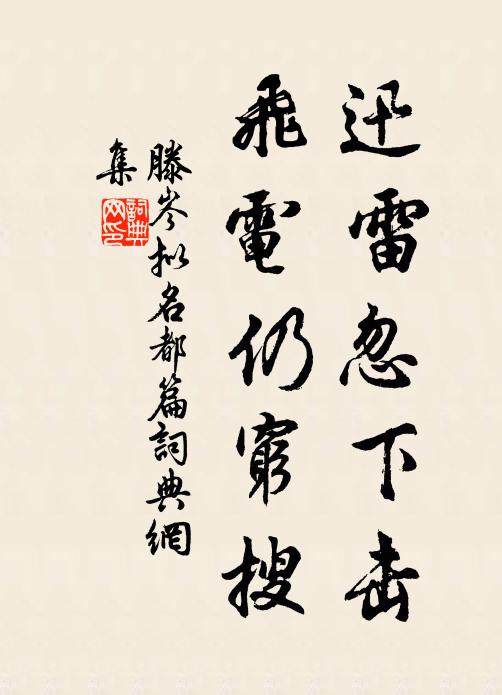 迅雷忽下击
飛電仍窮搜
滕岑拟名都篇詞典網
集
詞典
网印